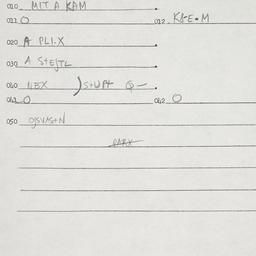 010 MIT A KAM
011 O 012 KAE•M
020 A PLI.X
030 A StEJTL
040 NEX ) StUPt
041 O 042 O
050